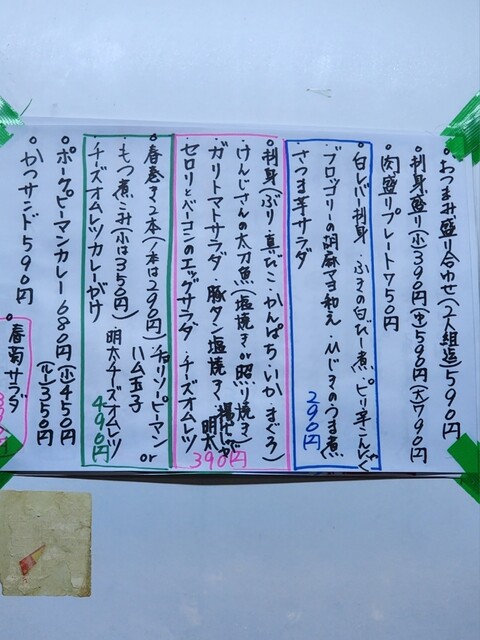 おつまみ盛り合わせ(2人組迄)590円
刺身盛り(小)390円(中)590円(大)790円
肉盛りプレート750円
白レバー刺身・ふきの白だし煮・ピリ辛こんにゃく
ブロッコリーの胡麻マヨ和え・ひじきのうま煮
さつま芋サラダ
290円
刺身(ぶり・真だこ・かんぱち・いか・まぐろ)
けんじさんの太刀魚(塩焼きor照り焼き)
ガリトマトサラダ・豚タン塩焼き・揚げじゃが明太
セロリとベーコンのエッグサラダ・チーズオムレツ
390円
春巻き2本(1本は290円)チョリソーピーマンor
ハム玉子
もつ煮こみ(小は350円)・明太チーズオムレツ
チーズオムレツカレーがけ
490円
ポークピーマンカレー680円(小)450円
(ルー)350円
かつサンド590円
春菊サラダ